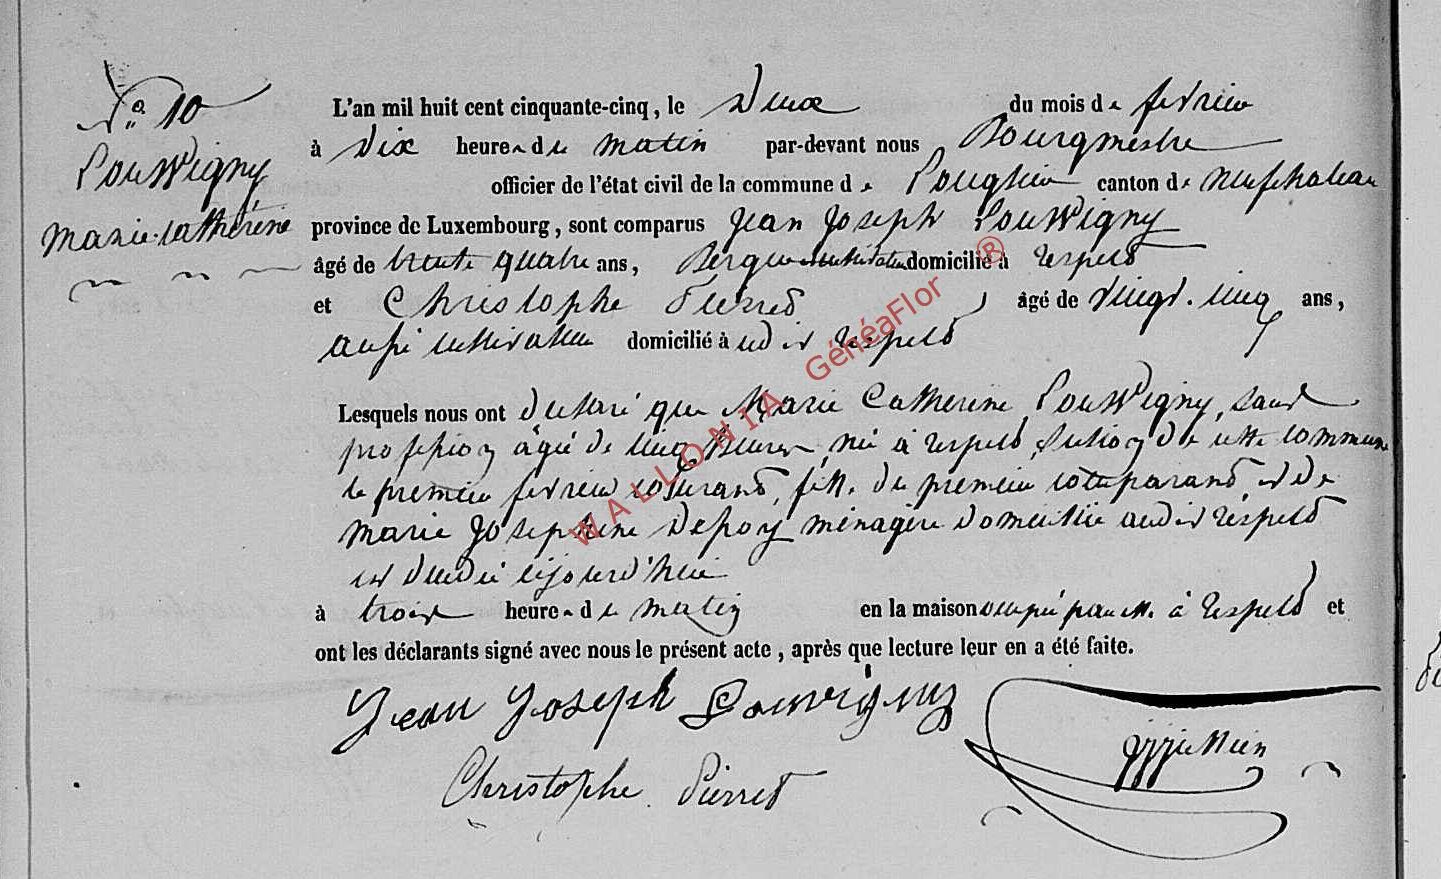 N° 10
Pouwigny
Marie Catherine
L'an mil huit cent cinquante-cinq, le deux du mois de fevrier
à dix heures du matin par-devant nous Bourgmestre
officier de l'état civil de la commune de canton de Neufchateau
province de Luxembourg, sont comparus Jean Joseph Pouwigny
âgé de trente quatre ans, Berger cultivateur domicilié à Respelt
et Christophe Pierret , âgé de vingt-cinq ans,
aussi cultivateur domicilié à udit Respelt
Lesquels nous ont déclaré que Marie Catherine Pouwigny, sans
profession agée de cinq heures, née à Respelt, section de cette commune
le premier fevrier courant, fille du premier comparant et de
Marie Josephine ménagère domiciliée audit Respelt
est décédée cejourd'hui
à trois heures du matin en la maison occupée par elle à Respelt et
ont les déclarants signé avec nous le présent acte, après que lecture leur en a été faite.
Jean Joseph Pouwigny
Christophe Pierret
WALLONIA GénéaFlor ®